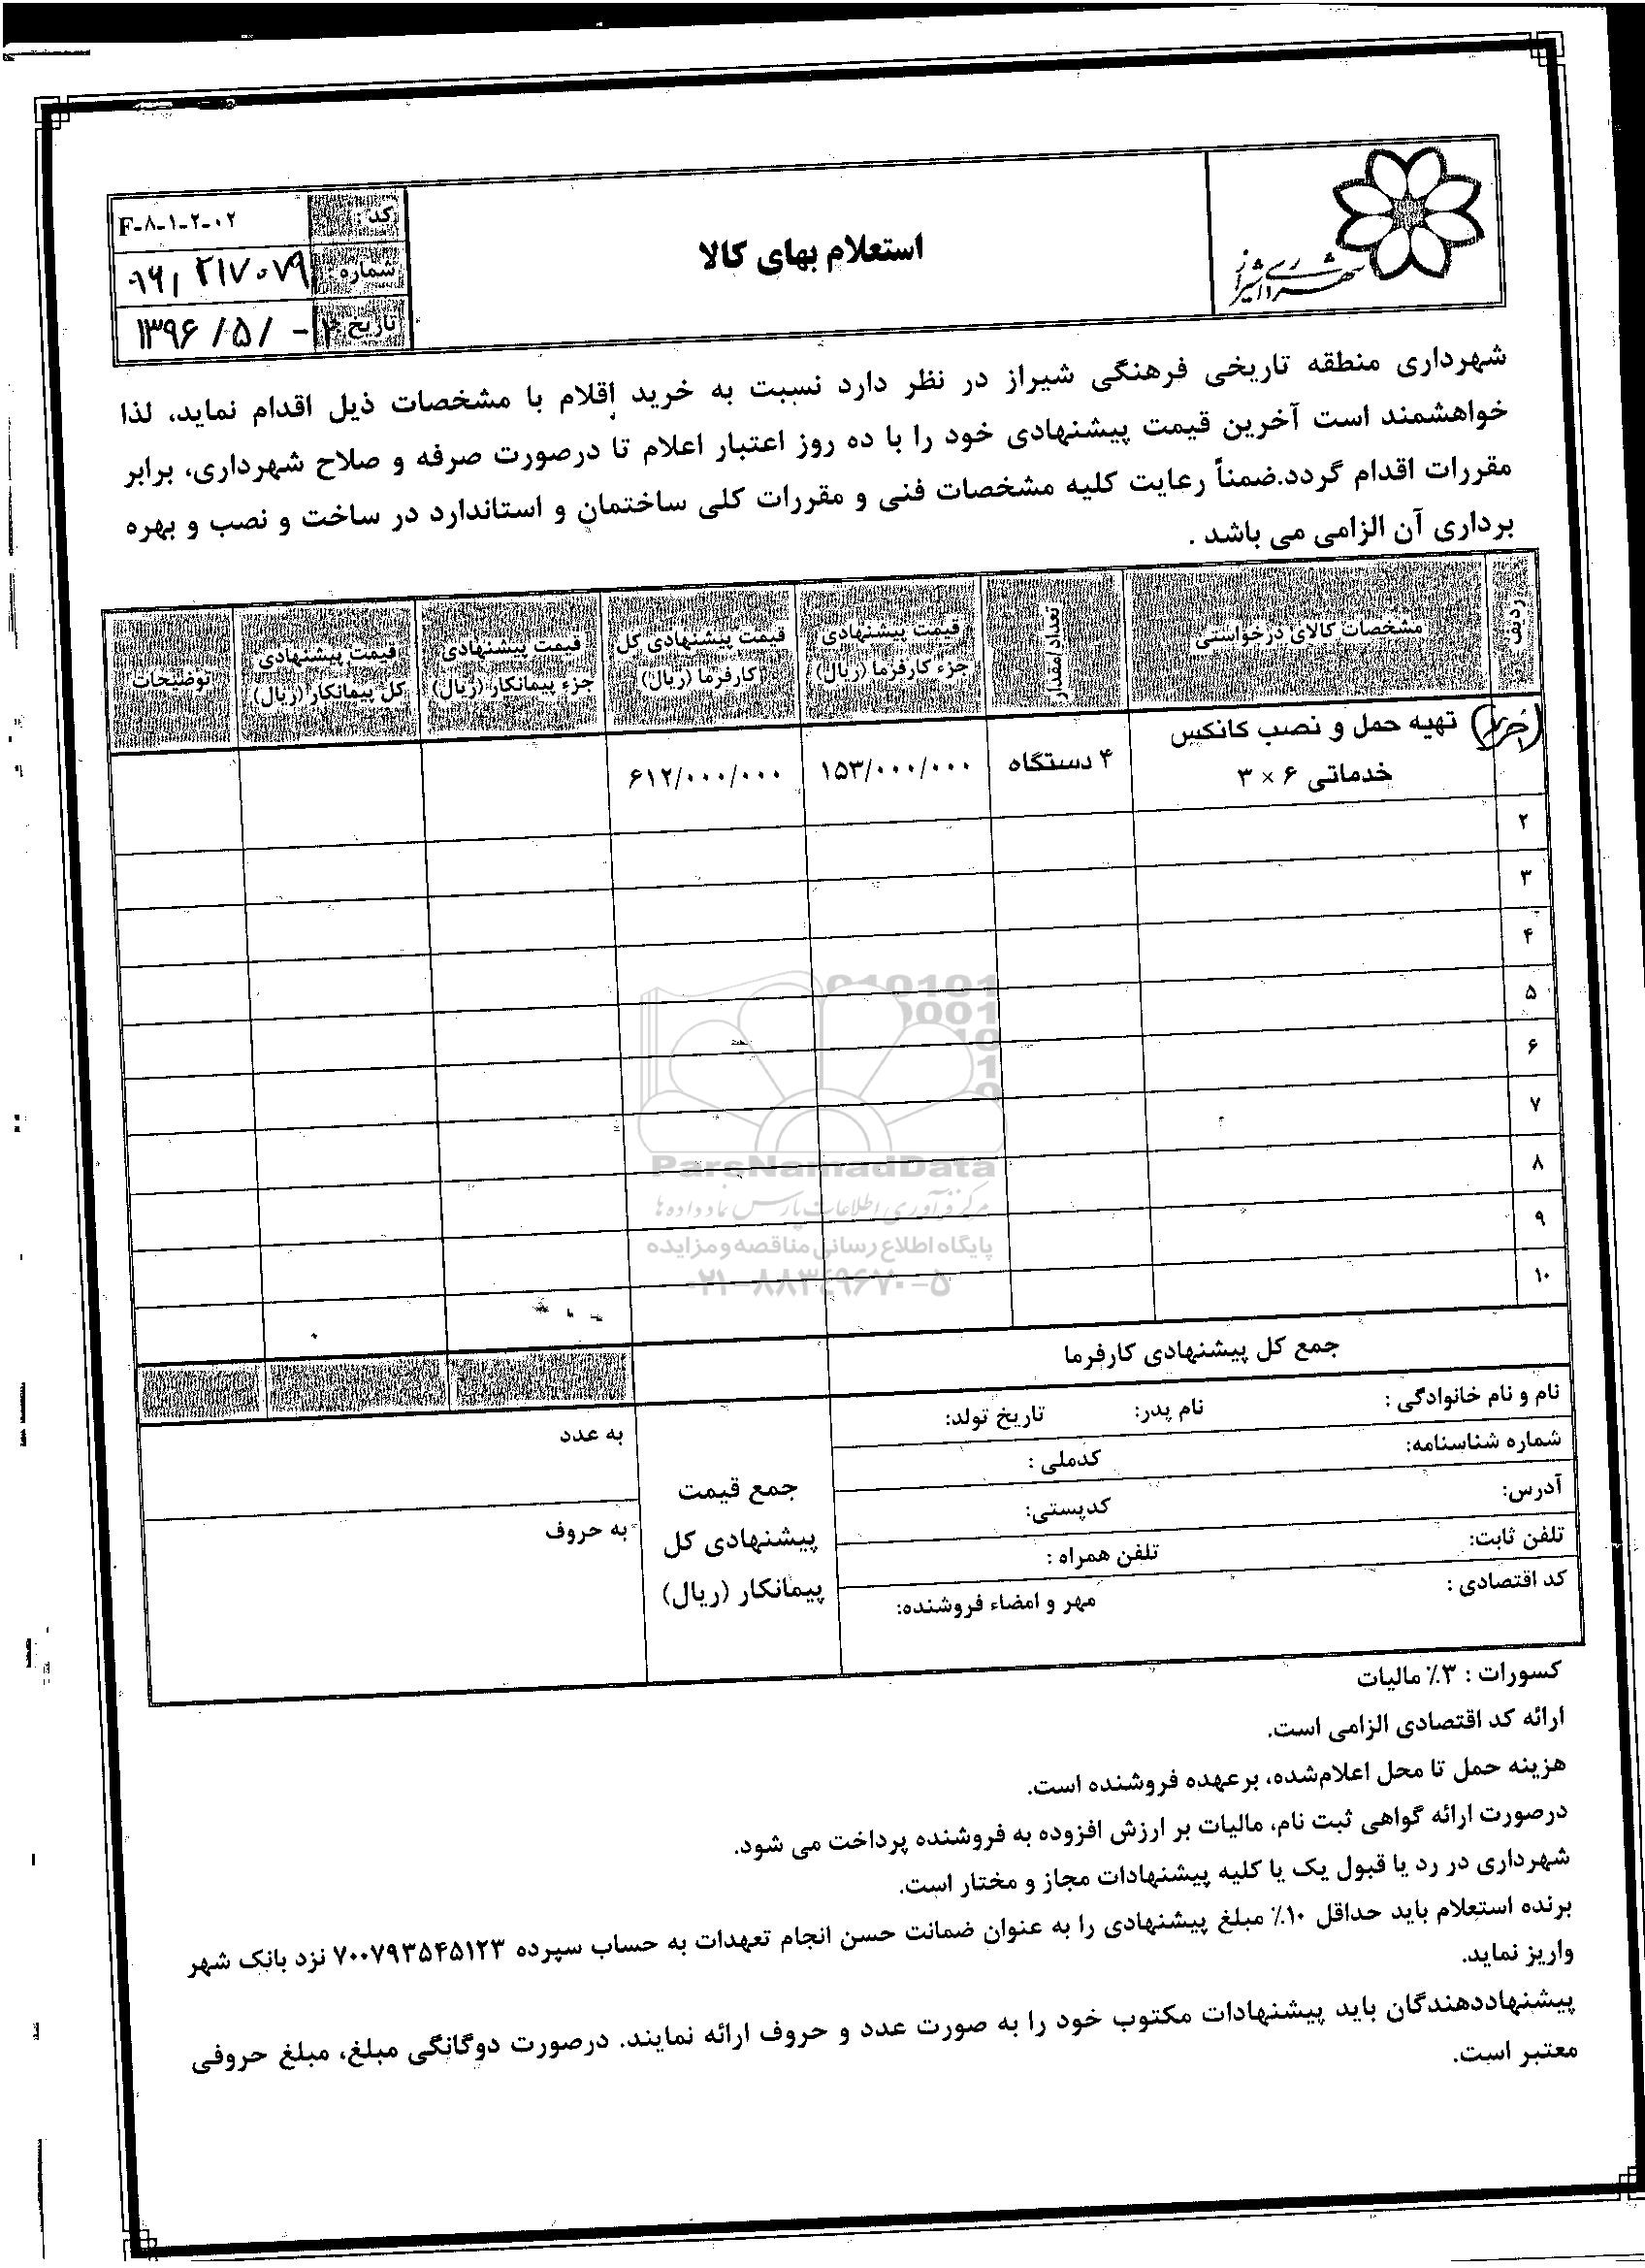 شهرداری شیراز
استعلام بهای کالا
کد : F-۸-۱-۲-۰۲
شماره : ۹۶/ ۲۱۷۰۷۹
تاریخ : ۱۳۹۶/۵/
شهرداری منطقه تاریخی فرهنگی شیراز در نظر دارد نسبت به خرید اقلام با مشخصات ذیل اقدام نماید، لذا
خواهشمند است آخرین قیمت پیشنهادی خود را با ده روز اعتبار اعلام تا درصورت صرفه و صلاح شهرداری، برابر
مقررات اقدام گردد.ضمناً رعایت کلیه مشخصات فنی و مقررات کلی ساختمان و استاندارد در ساخت و نصب و بهره
برداری آن الزامی می باشد .
ردیف
مشخصات کالای درخواستی
تعداد/مقدار
قیمت پیشنهادی
جزء کارفرما (ریال)
قیمت پیشنهادی کل
کارفرما (ریال)
قیمت پیشنهادی
جزء پیمانکار (ریال)
قیمت پیشنهادی
کل پیمانکار (ریال)
توضیحات
تهیه حمل و نصب کانکس
خدماتی ۶ × ۳
۴ دستگاه
۱۵۳/۰۰۰/۰۰۰
۶۱۲/۰۰۰/۰۰۰
۲
۳
۴
۵
۶
۷
۸
۹
۱۰
ParsNamadData
مرکز فرآوری اطلاعات پارس نماد داده ها
پایگاه اطلاع رسانی مناقصه و مزایده
۰۲۱-۸۸۳۴۹۶۷۰-۵
جمع کل پیشنهادی کارفرما
نام و نام خانوادگی : نام پدر: تاریخ تولد:
شماره شناسنامه: کدملی :
آدرس: کدپستی:
تلفن ثابت: تلفن همراه :
کد اقتصادی : مهر و امضاء فروشنده:
جمع قیمت
پیشنهادی کل
پیمانکار (ریال)
به عدد
به حروف
کسورات : ۳٪ مالیات
ارائه کد اقتصادی الزامی است.
هزینه حمل تا محل اعلام‌شده، برعهده فروشنده است.
درصورت ارائه گواهی ثبت نام، مالیات بر ارزش افزوده به فروشنده پرداخت می شود.
شهرداری در رد یا قبول یک یا کلیه پیشنهادات مجاز و مختار است.
برنده استعلام باید حداقل ۱۰٪ مبلغ پیشنهادی را به عنوان ضمانت حسن انجام تعهدات به حساب سپرده ۷۰۰۷۹۳۵۴۵۱۲۳ نزد بانک شهر
واریز نماید.
پیشنهاددهندگان باید پیشنهادات مکتوب خود را به صورت عدد و حروف ارائه نمایند. درصورت دوگانگی مبلغ، مبلغ حروفی
معتبر است.